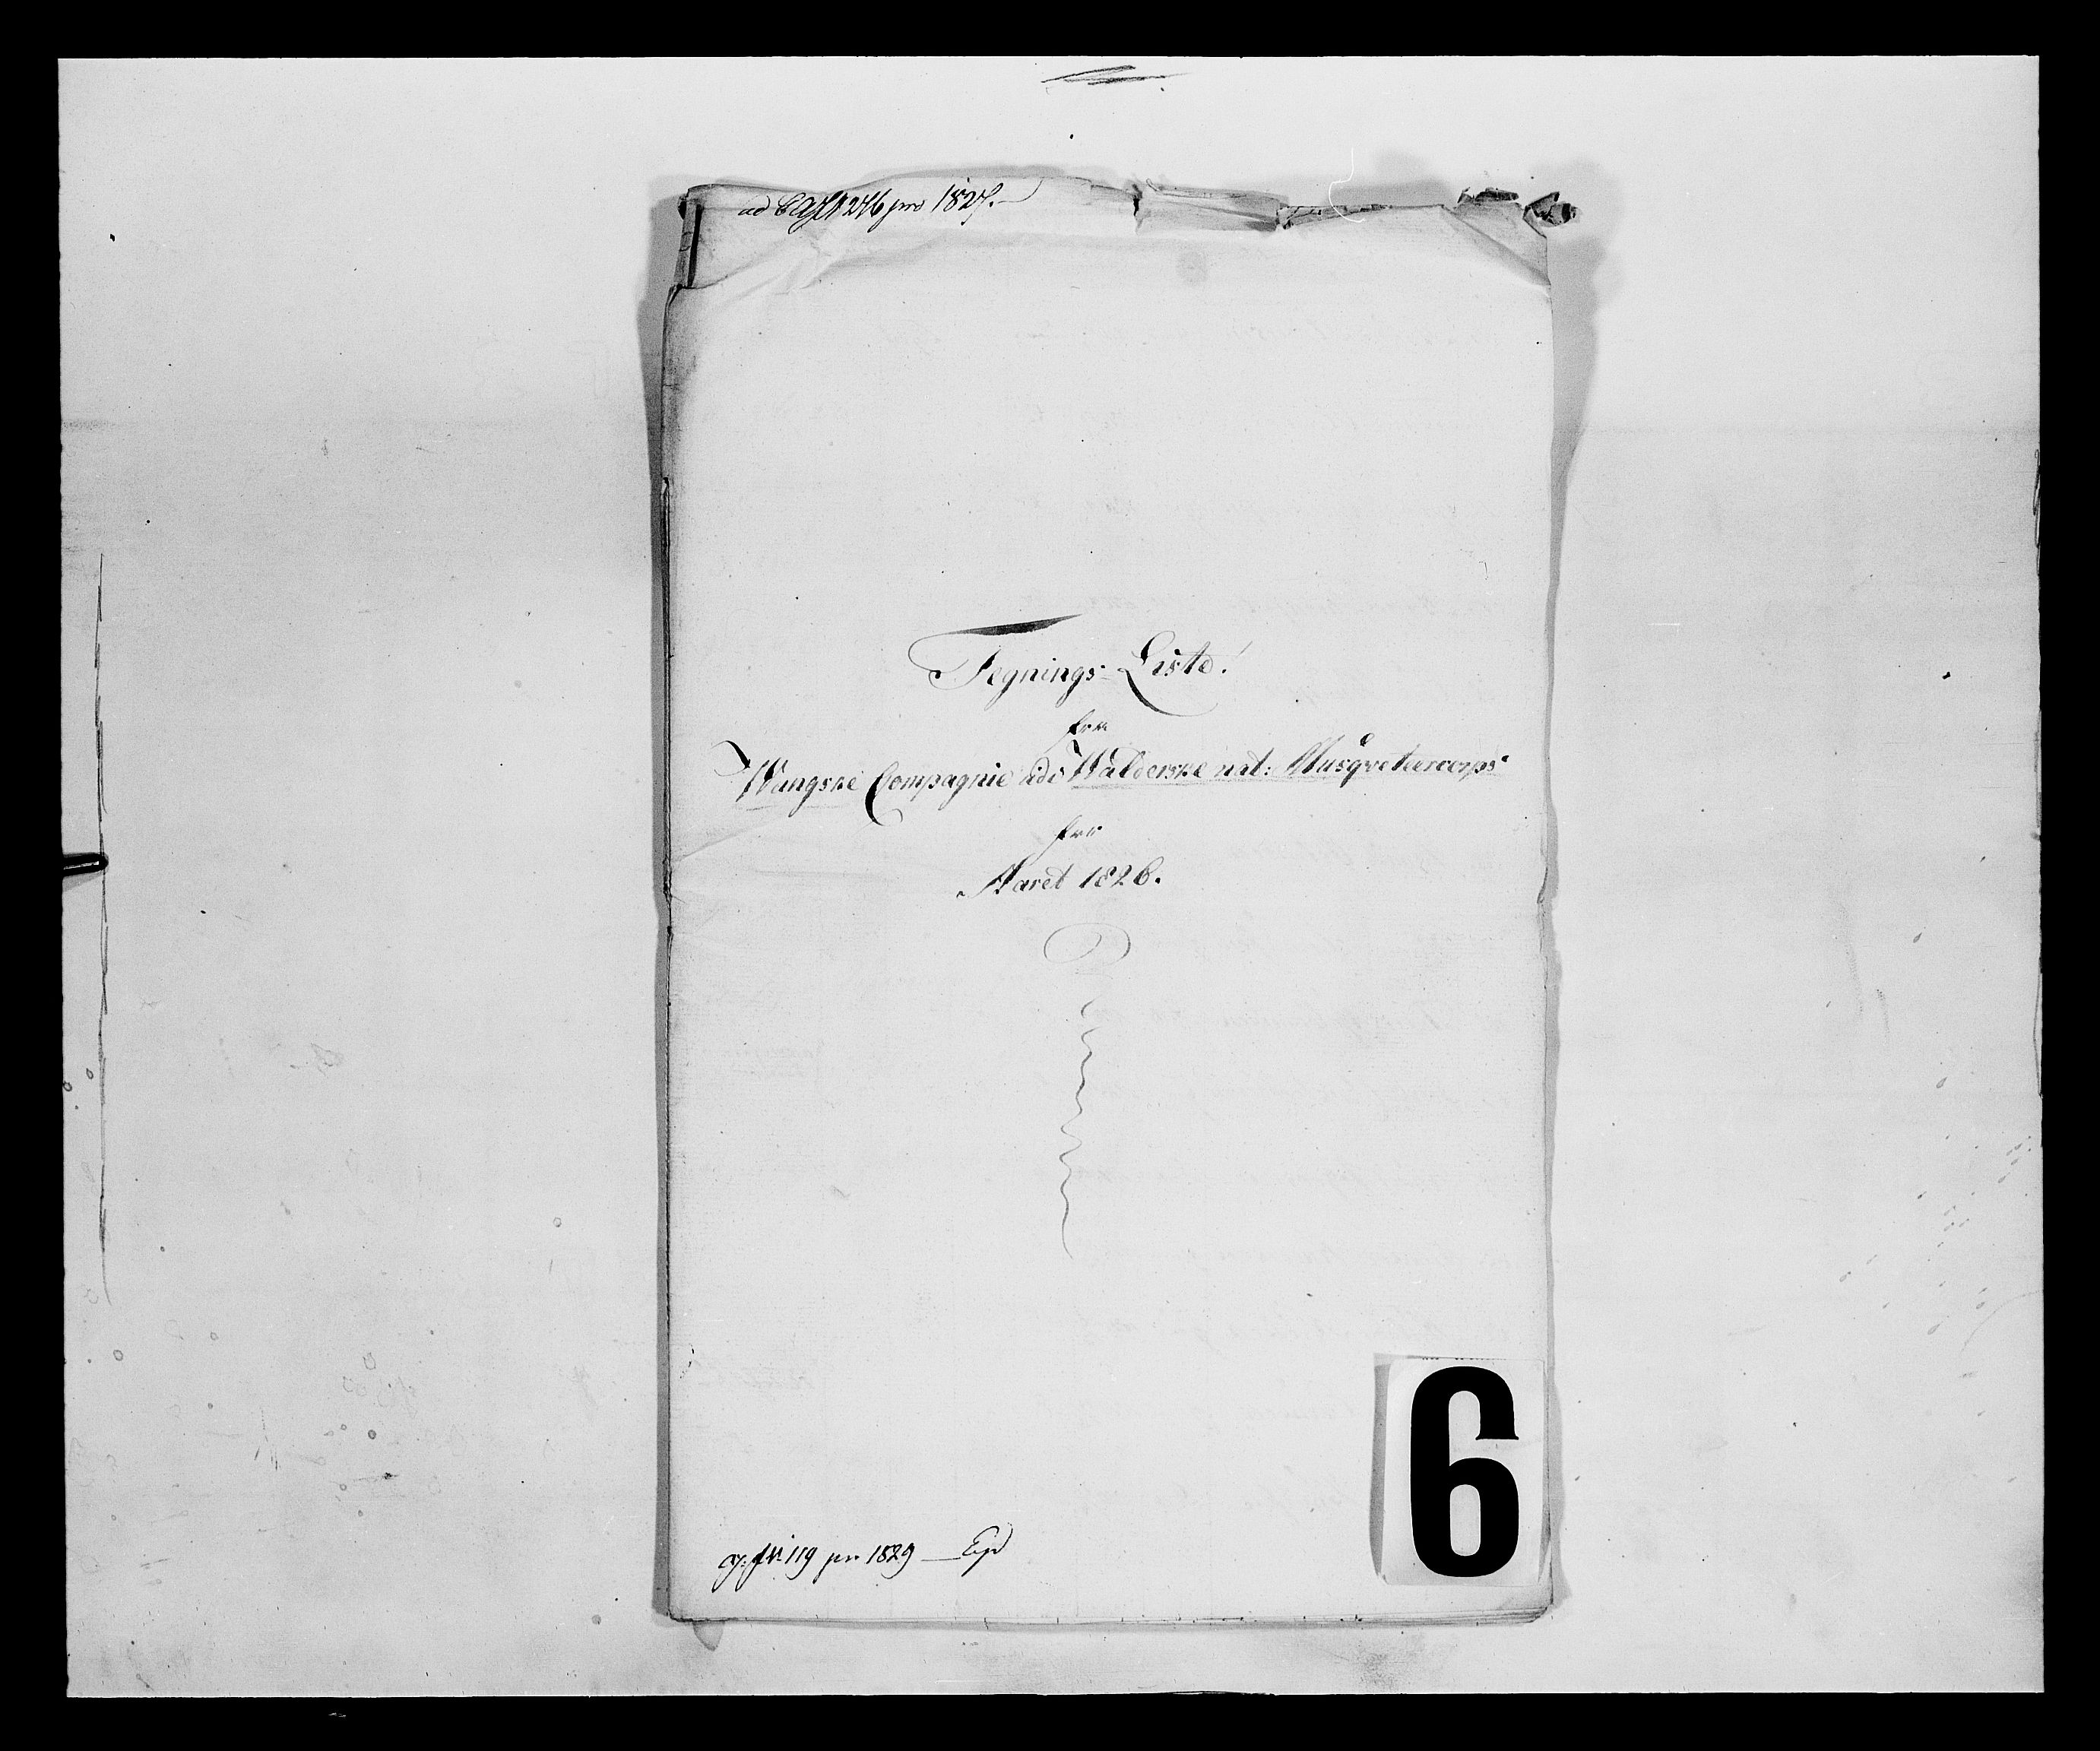 ad pro 1827.
Tegnings-Liste!
for
Wangske Compagnie udi Walderske nat: Musqveteercorps
for
Aaret 1826.
119 pro 1829 —
6